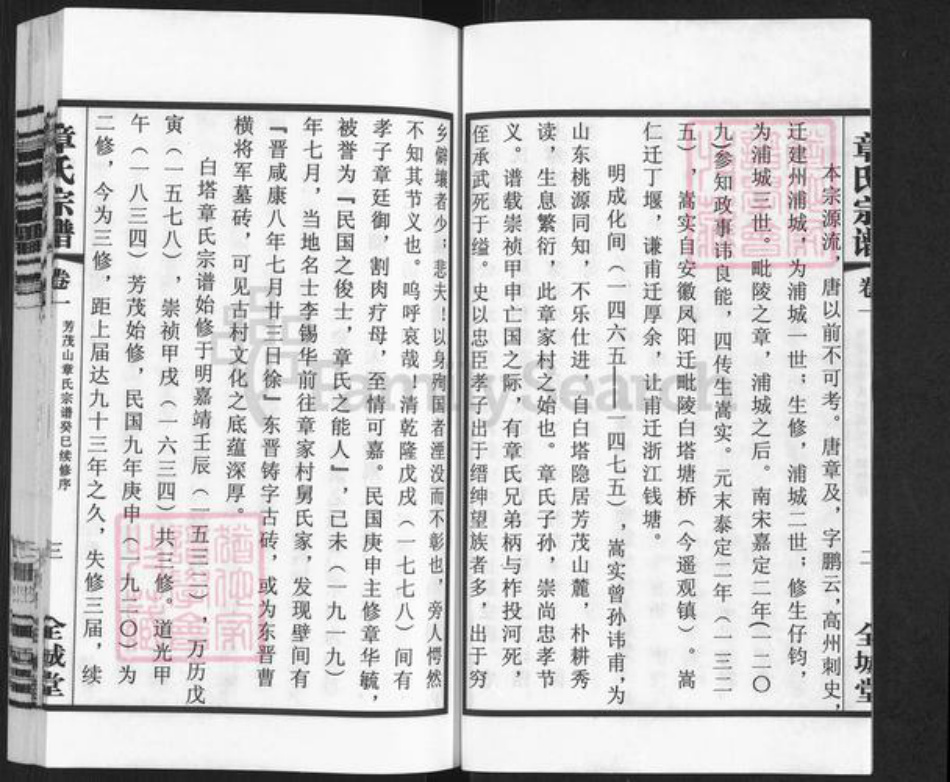 章氏宗谱
卷一
二
全城堂
本宗源流，唐以前不可考。唐章及，字鹏云，高州刺史，
迁建州浦城，为浦城一世；生修，浦城二世；修生仔钧，
为浦城三世。毗陵之章，浦城之后。南宋嘉定二年(一二〇
九)参知政事讳良能，四传生嵩实。元末泰定二年（一三二
五），嵩实自安徽凤阳迁毗陵白塔塘桥（今遥观镇）。嵩
仁迁丁堰，谦甫迁厚余，让甫迁浙江钱塘。
明成化间（一四六五——一四七五），嵩实曾孙讳甫，为
山东桃源同知，不乐仕进，自白塔隐居芳茂山麓，朴耕秀
读，生息繁衍，此章家村之始也。章氏子孙，崇尚忠孝节
义。谱载崇祯甲申亡国之际，有章氏兄弟柄与柞投河死，
侄承武死于缢。史以忠臣孝子出于缙绅望族者多，出于穷
乡僻壤者少；悲夫！以身殉国者湮没而不彰也，旁人愕然
不知其节义也。呜呼哀哉！清乾隆戊戌（一七七八）间有
孝子章廷御，割肉疗母，至情可嘉。民国庚申主修章华毓，
被誉为『民国之俊士，章氏之能人』，己未（一九一九）
年七月，当地名士李锡华前往章家村舅氏家，发现壁间有
『晋咸康八年七月廿三日徐』东晋铸字古砖，或为东晋曹
横将军墓砖，可见古村文化之底蕴深厚。
白塔章氏宗谱始修于明嘉靖壬辰（一五三二），万历戊
寅（一五七八），崇祯甲戌（一六三四）共三修。道光甲
午（一八三四）芳茂始修，民国九年庚申（一九二〇）为
二修，今为三修，距上届达九十三年之久，失修三届，续
章氏宗谱
卷一
芳茂山章氏宗谱癸巳续修序
三
全城堂
FamilySearch